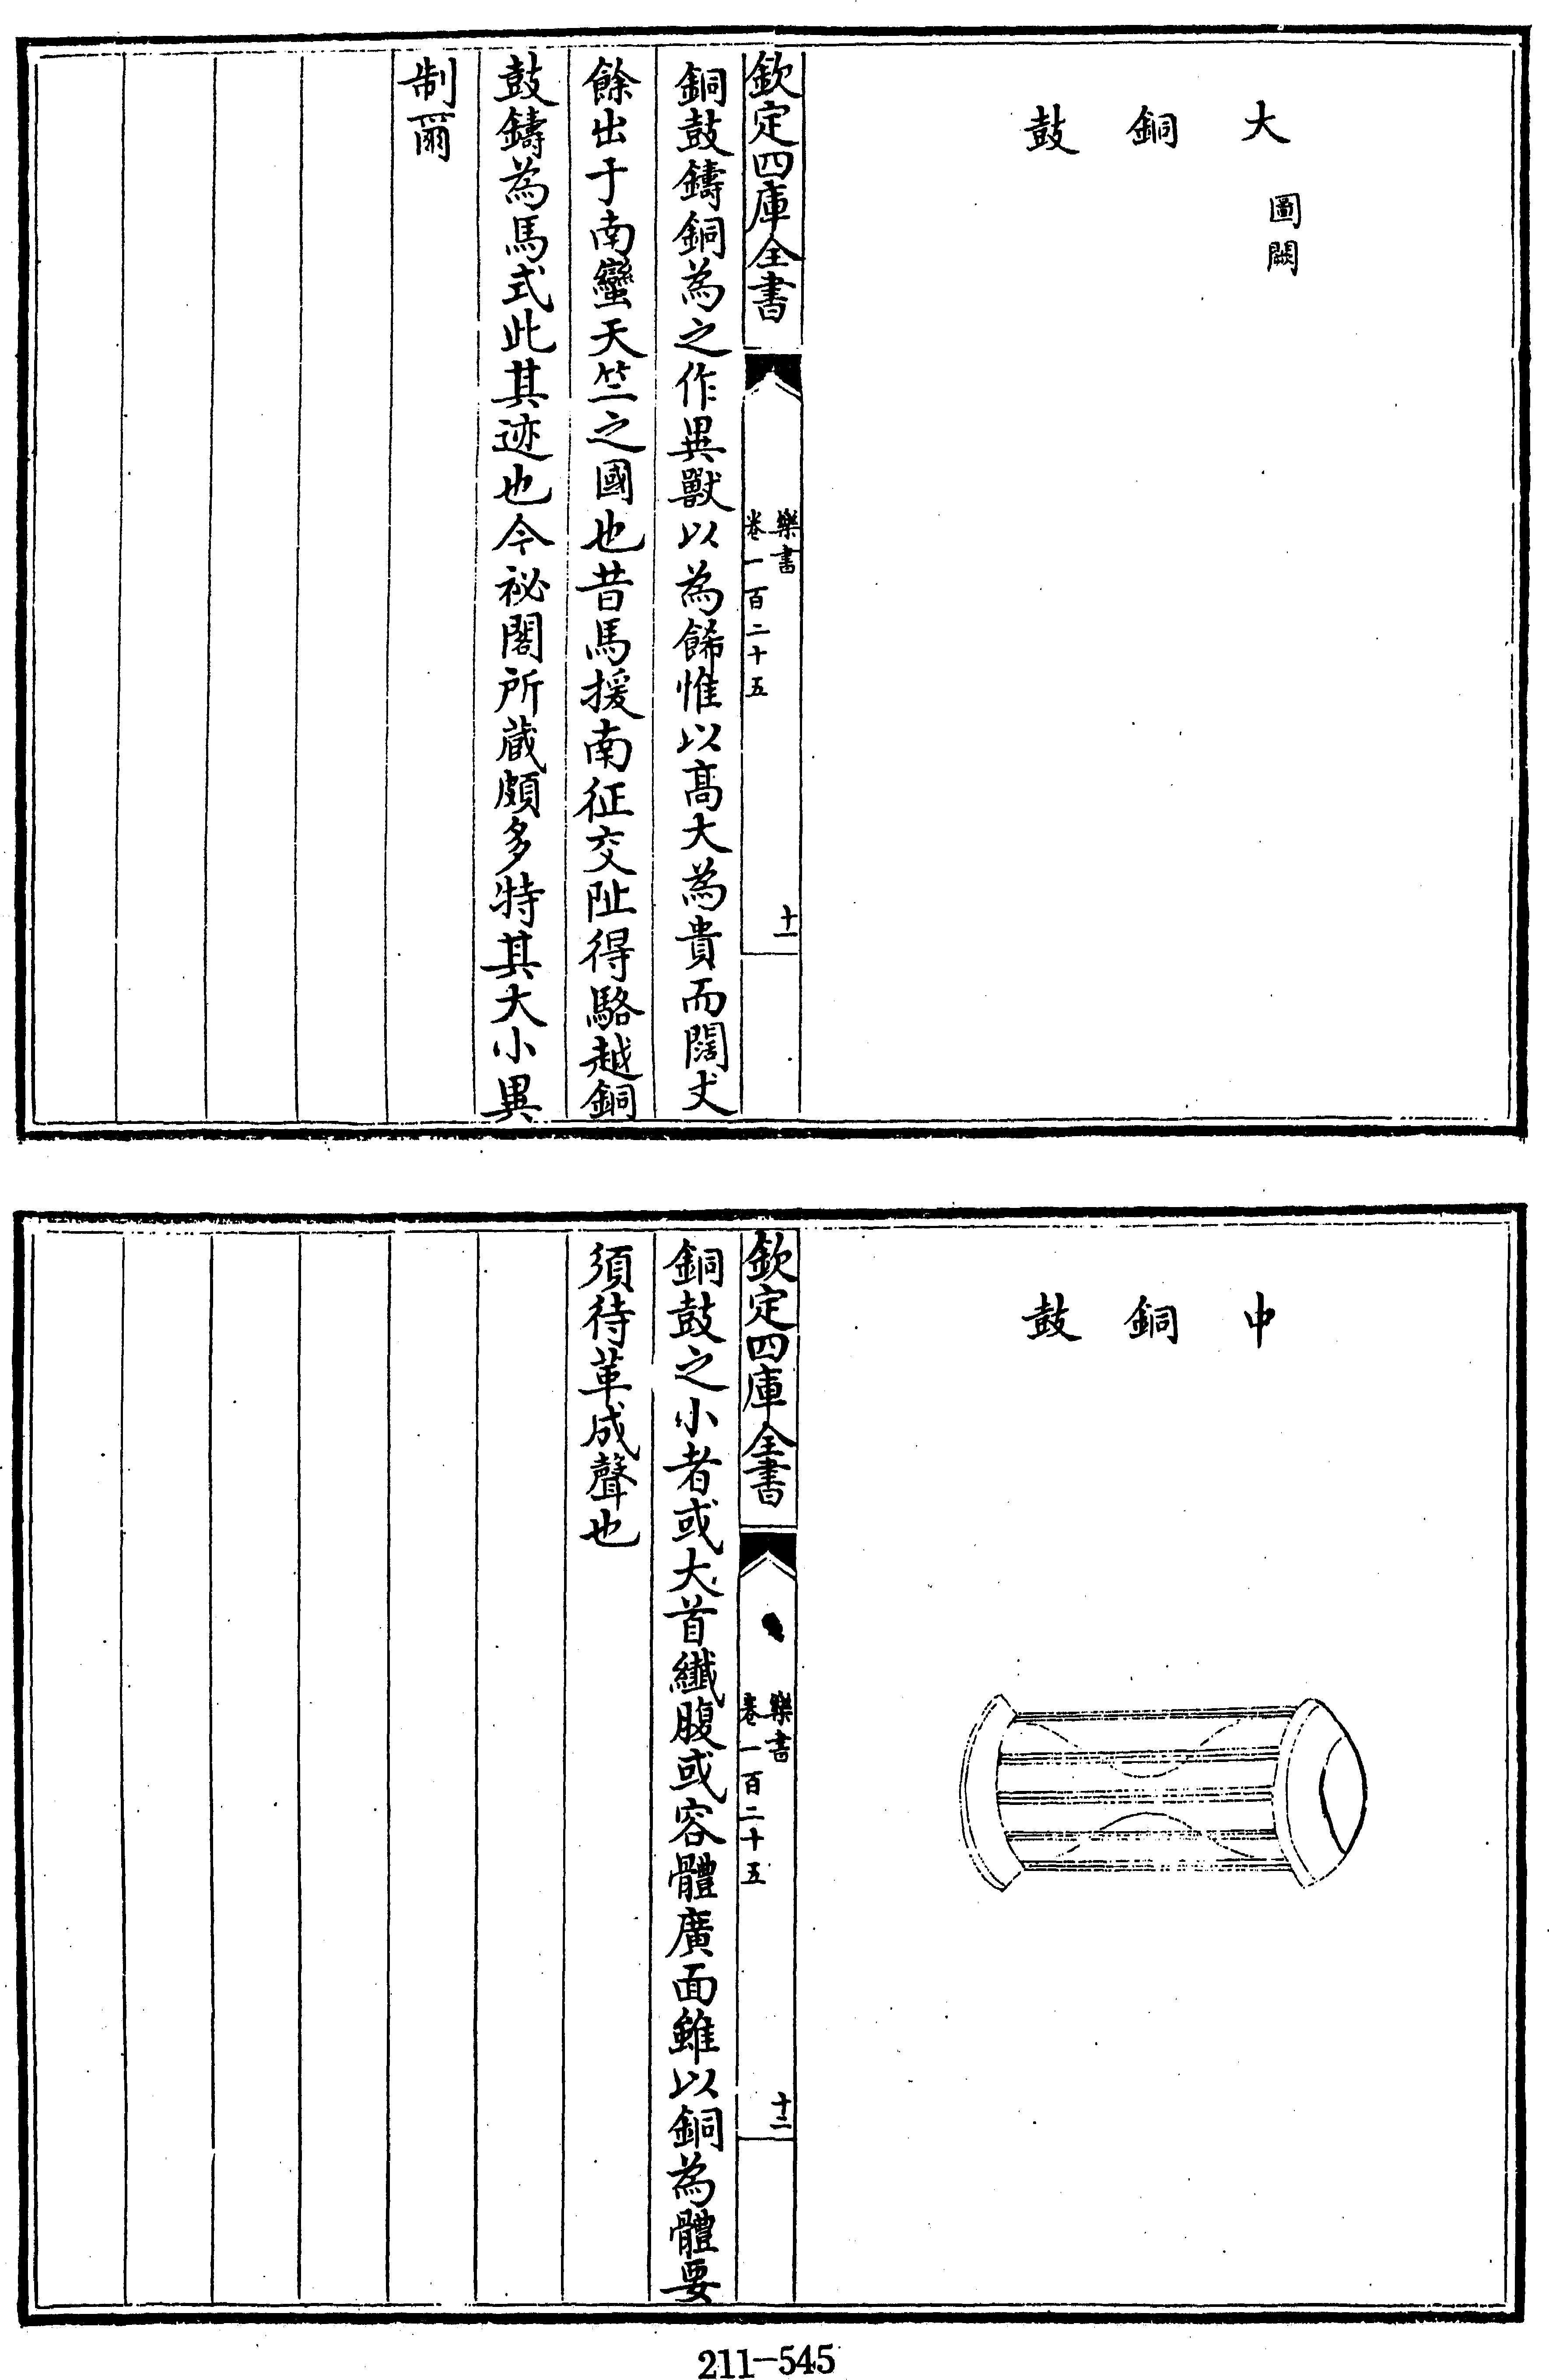 大銅鼓
圖闕
欽定四庫全書
樂書
卷一百二十五
十一
銅鼓鑄銅為之作異獸以為餙惟以髙大為貴而闊丈
餘出于南蠻天竺之國也昔馬援南征交阯得駱越銅
鼓鑄為馬式此其迹也今祕閣所蔵頗多特其大小異
制爾
中銅鼓
欽定四庫全書
樂書
卷一百二十五
十二
銅鼓之小者或大首纎腹或容體廣面雖以銅為體要
須待革成聲也
211-545